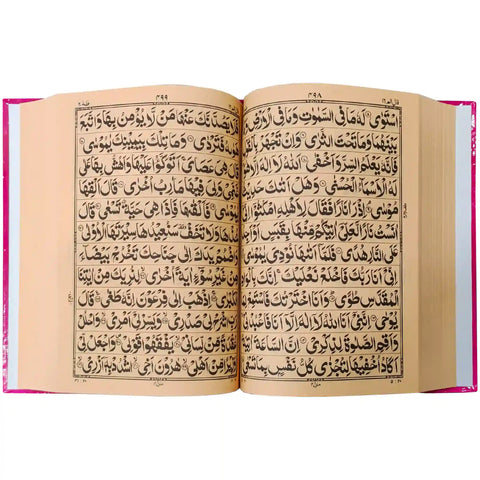 قال الم ١٦
٤٩٨
اسْتَوٰى لَهٗ مَا فِی السَّمٰوٰتِ وَمَا فِی الْاَرْضِ وَمَا
بَیْنَهُمَا وَمَا تَحْتَ الثَّرٰى وَاِنْ تَجْهَرْ بِالْقَوْلِ
فَاِنَّهٗ یَعْلَمُ السِّرَّ وَاَخْفٰى اَللّٰهُ لَاۤ اِلٰهَ اِلَّا هُوَ
لَهُ الْاَسْمَآءُ الْحُسْنٰى وَهَلْ اَتٰىكَ حَدِیْثُ
مُوْسٰى اِذْ رَاٰ نَارًا فَقَالَ لِاَهْلِهِ امْكُثُوْۤا اِنِّیْۤ
اٰنَسْتُ نَارًا لَّعَلِّیْۤ اٰتِیْكُمْ مِّنْهَا بِقَبَسٍ اَوْ اَجِدُ
عَلَى النَّارِ هُدًى فَلَمَّاۤ اَتٰىهَا نُوْدِیَ یٰمُوْسٰى
اِنِّیْۤ اَنَا رَبُّكَ فَاخْلَعْ نَعْلَیْكَ اِنَّكَ بِالْوَادِ
الْمُقَدَّسِ طُوًى وَاَنَا اخْتَرْتُكَ فَاسْتَمِعْ لِمَا
یُوْحٰى اِنَّنِیْۤ اَنَا اللّٰهُ لَاۤ اِلٰهَ اِلَّاۤ اَنَا فَاعْبُدْنِیْ
وَاَقِمِ الصَّلٰوةَ لِذِكْرِیْ اِنَّ السَّاعَةَ اٰتِیَةٌ
اَكَادُ اُخْفِیْهَا لِتُجْزٰى كُلُّ نَفْسٍۭ بِمَا تَسْعٰى
٤٩٩
طٰهٰ ٢٠
فَلَا یَصُدَّنَّكَ عَنْهَا مَنْ لَّا یُؤْمِنُ بِهَا وَاتَّبَعَ
هَوٰىهُ فَتَرْدٰى وَمَا تِلْكَ بِیَمِیْنِكَ یٰمُوْسٰى
قَالَ هِیَ عَصَایَ اَتَوَكَّؤُا عَلَیْهَا وَاَهُشُّ بِهَا عَلٰى
غَنَمِیْ وَلِیَ فِیْهَا مَاٰرِبُ اُخْرٰى قَالَ اَلْقِهَا
یٰمُوْسٰى فَاَلْقٰىهَا فَاِذَا هِیَ حَیَّةٌ تَسْعٰى قَالَ
خُذْهَا وَلَا تَخَفْ سَنُعِیْدُهَا سِیْرَتَهَا الْاُوْلٰى
وَاضْمُمْ یَدَكَ اِلٰى جَنَاحِكَ تَخْرُجْ بَیْضَآءَ
مِنْ غَیْرِ سُوْٓءٍ اٰیَةً اُخْرٰى لِنُرِیَكَ مِنْ اٰیٰتِنَا
الْكُبْرٰى اِذْهَبْ اِلٰى فِرْعَوْنَ اِنَّهٗ طَغٰى قَالَ
رَبِّ اشْرَحْ لِیْ صَدْرِیْ وَیَسِّرْ لِیْۤ اَمْرِیْ وَاحْلُلْ
عُقْدَةً مِّنْ لِّسَانِیْ یَفْقَهُوْا قَوْلِیْ وَاجْعَلْ لِّیْ
وَزِیْرًا مِّنْ اَهْلِیْ هٰرُوْنَ اَخِی اشْدُدْ بِهٖۤ اَزْرِیْ